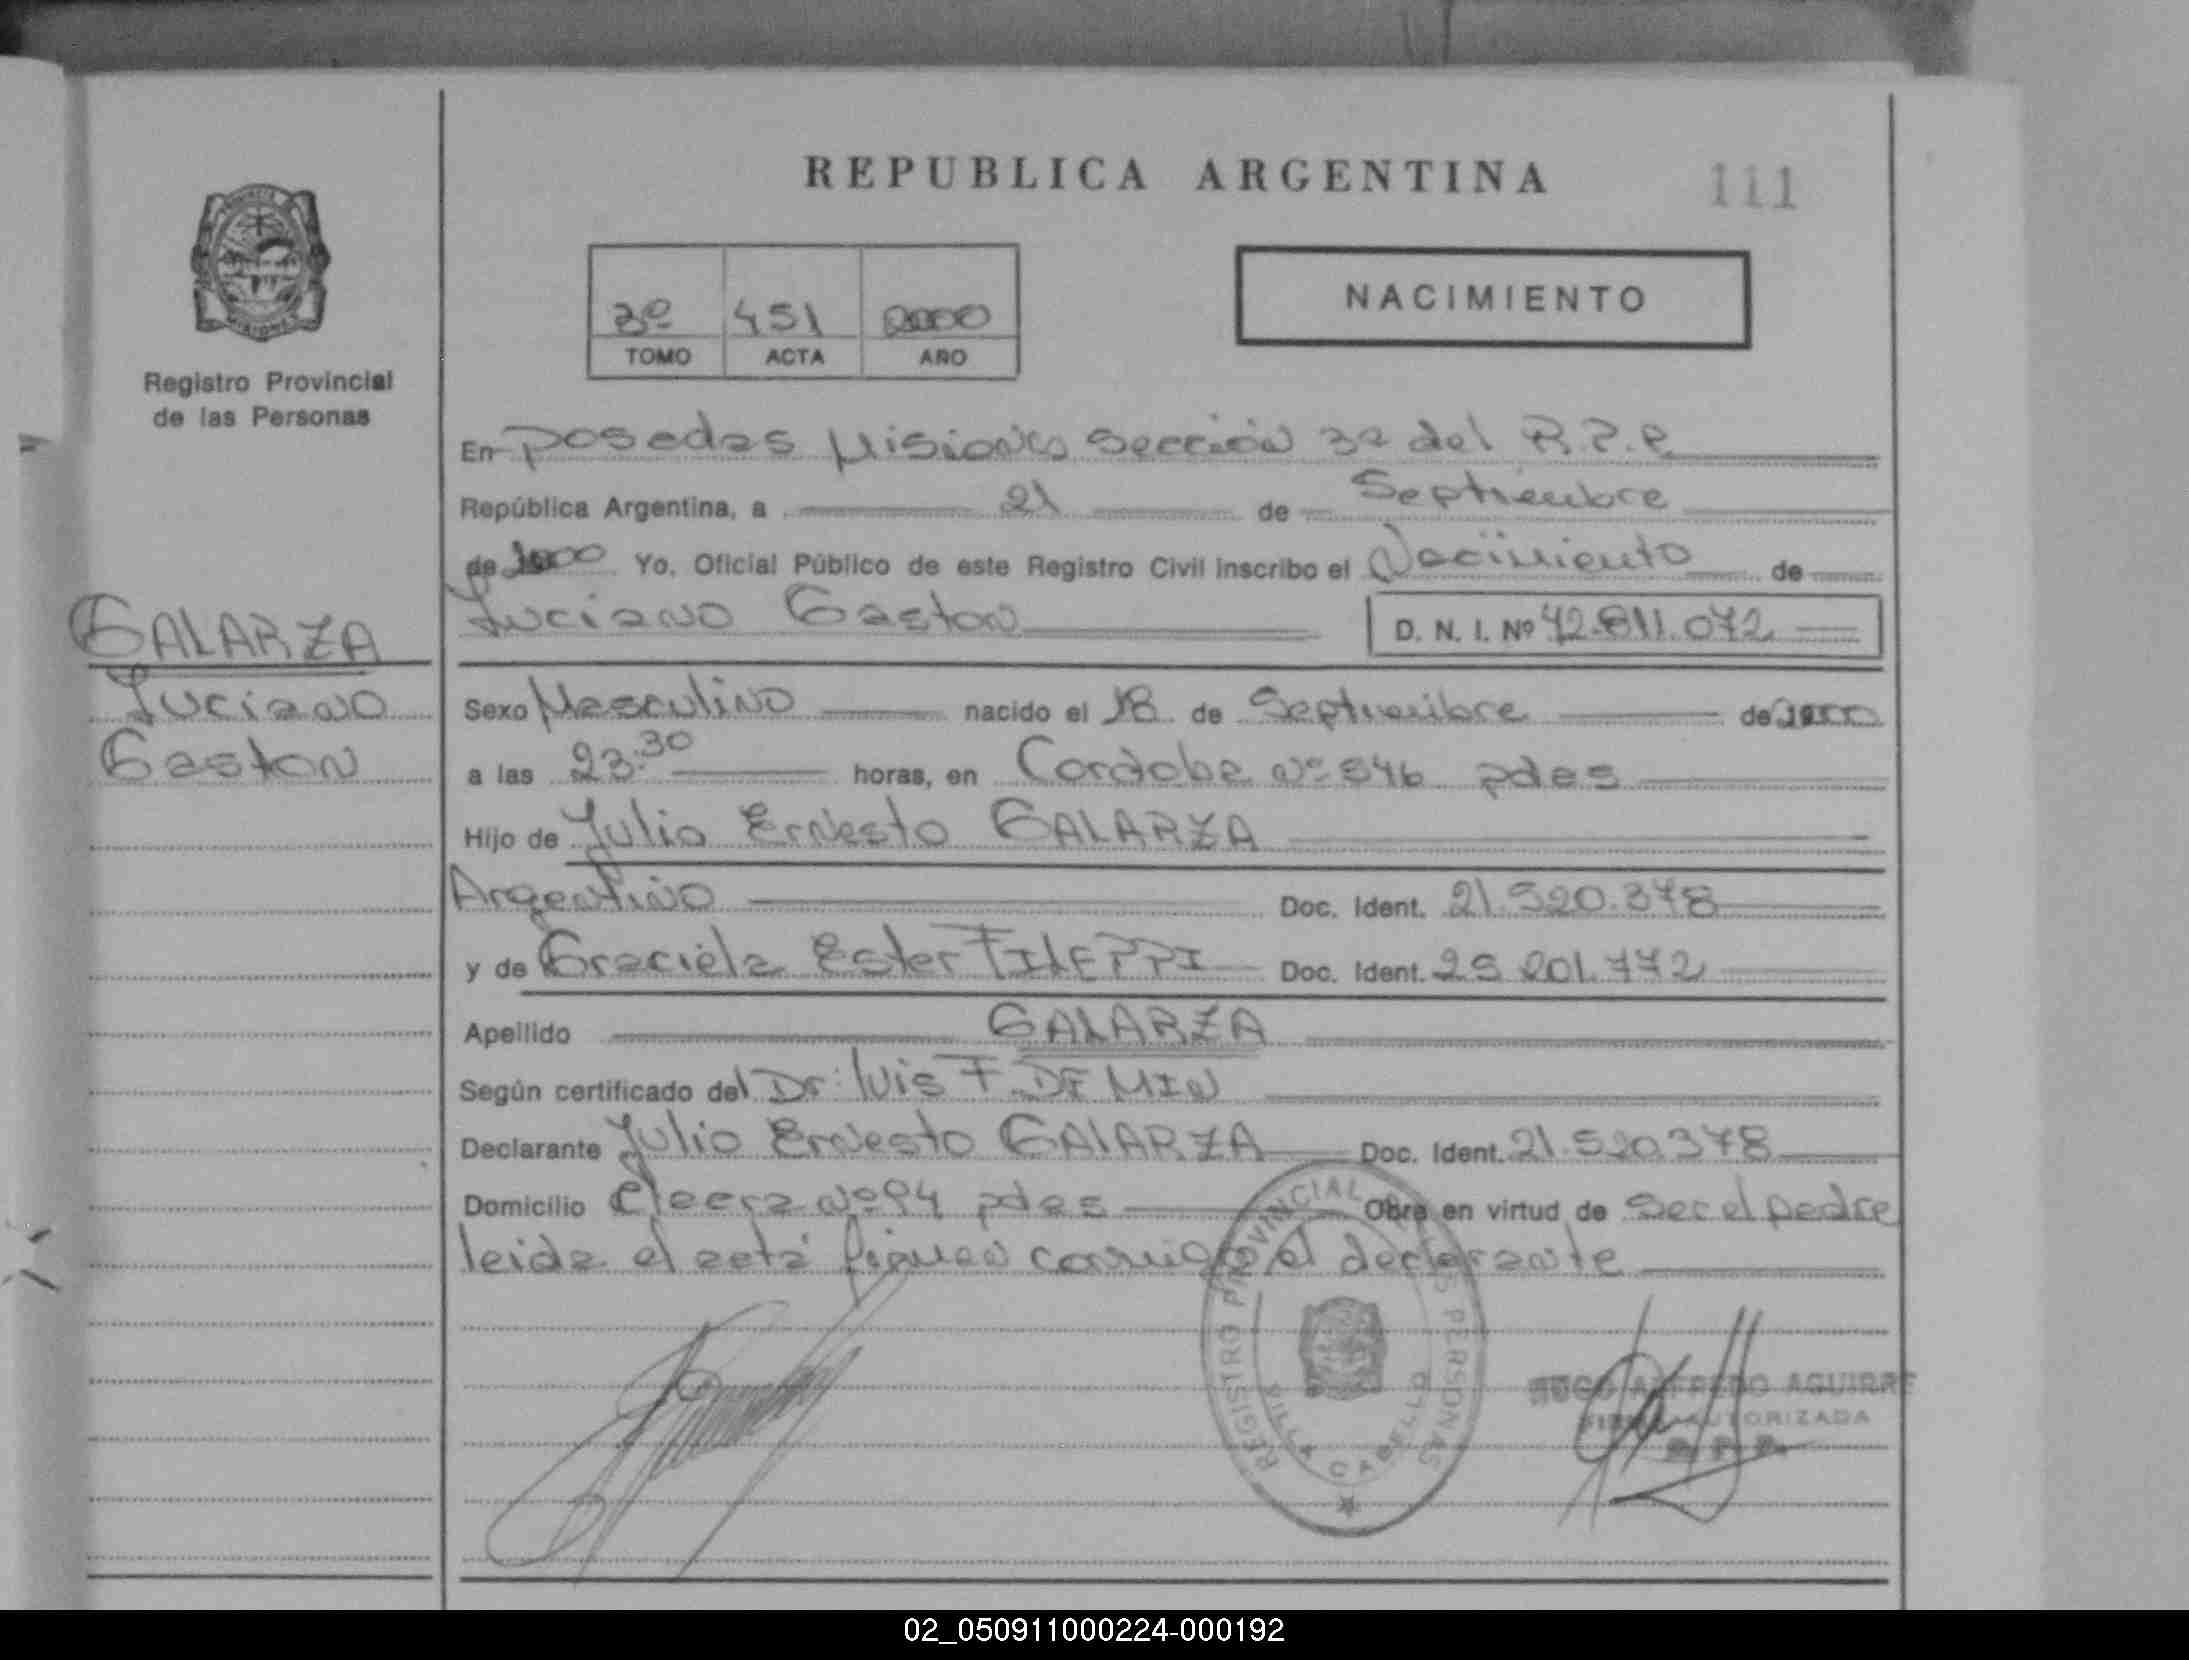 REPUBLICA ARGENTINA
111
NACIMIENTO
3º 451 2000
TOMO ACTA AÑO
Registro Provincial
de las Personas
GALARZA
Luciano
Gaston
En Posadas Misiones Sección 3ª del R.P.P.
República Argentina, a 21 de Septiembre
de 2000 Yo, Oficial Público de este Registro Civil inscribo el Nacimiento de
Luciano Gaston D. N. I. Nº 42.811.072
Sexo Masculino nacido el 18 de Septiembre de 2000
a las 23:30 horas, en Cordoba Nº 546 pdas
Hijo de Julio Ernesto GALARZA
Argentino Doc. Ident. 21.520.378
y de Graciela Ester FILEPPI Doc. Ident. 25.201.772
Apellido GALARZA
Según certificado del Dr: Luis F. DE MIN
Declarante Julio Ernesto GALARZA Doc. Ident. 21.520.378
Domicilio Nº 94 pdas Obra en virtud de ser el padre
leida el acta firman conmigo el declarante
REGISTRO PROVINCIAL DE LAS PERSONAS
VILLA CABELLO
HUGO ALFREDO AGUIRRE
FIRMA AUTORIZADA
R. P. P.
02_050911000224-000192